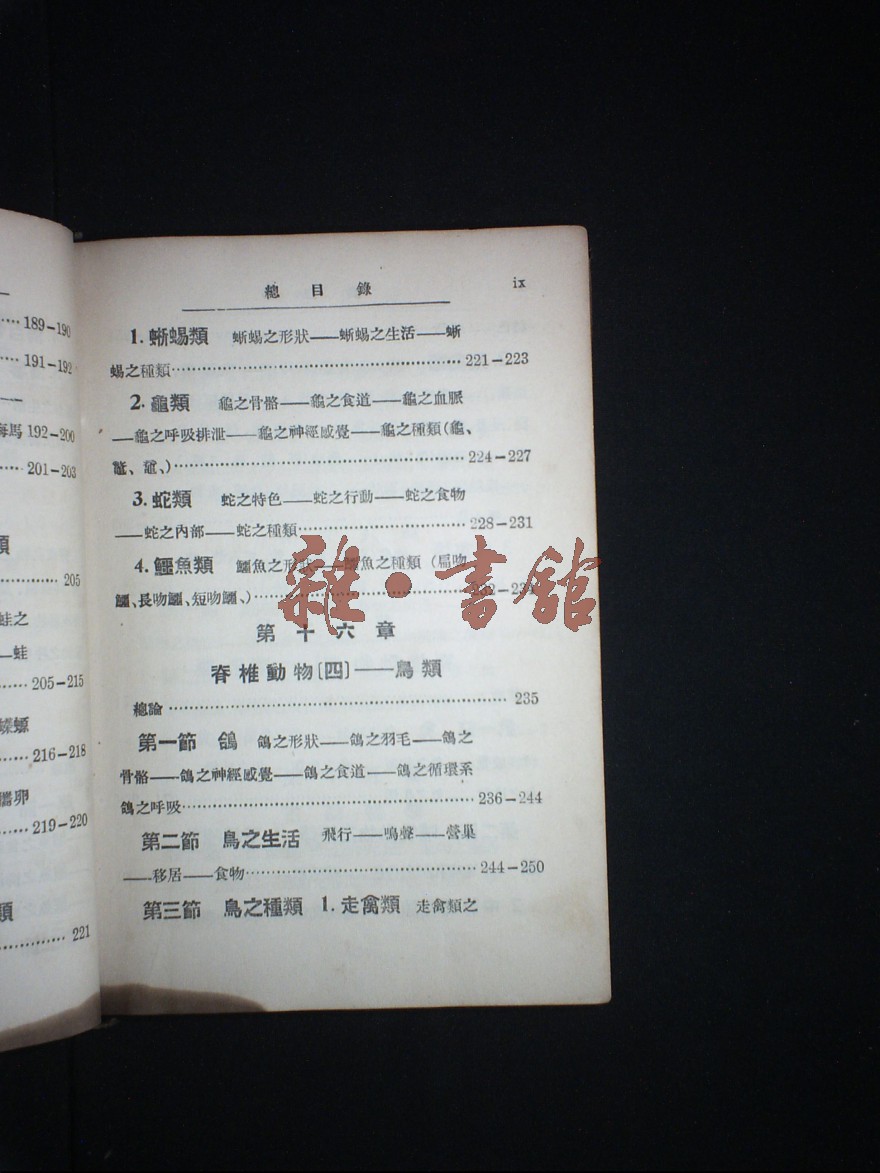 189-190
191-192
海馬 192-200
201-203
類
205
蛙之
蛙
205-215
蠑螈
216-218
卵
219-220
類
221
總目錄 ix
1. 蜥蜴類 蜥蜴之形狀——蜥蜴之生活——蜥
蜴之種類 221-223
2. 龜類 龜之骨骼——龜之食道——龜之血脈
——龜之呼吸排泄——龜之神經感覺——龜之種類(龜、
鼈、黿、) 224-227
3. 蛇類 蛇之特色——蛇之行動——蛇之食物
——蛇之內部——蛇之種類 228-231
4. 鱷魚類 鱷魚之形狀——鱷魚之種類(扁吻
鱷、長吻鱷、短吻鱷、)
雜·書館
第十六章
脊椎動物〔四〕——鳥類
總論 235
第一節 鴿 鴿之形狀——鴿之羽毛——鴿之
骨骼——鴿之神經感覺——鴿之食道——鴿之循環系
鴿之呼吸 236-244
第二節 鳥之生活 飛行——鳴聲——營巢
——移居——食物 244-250
第三節 鳥之種類 1. 走禽類 走禽類之